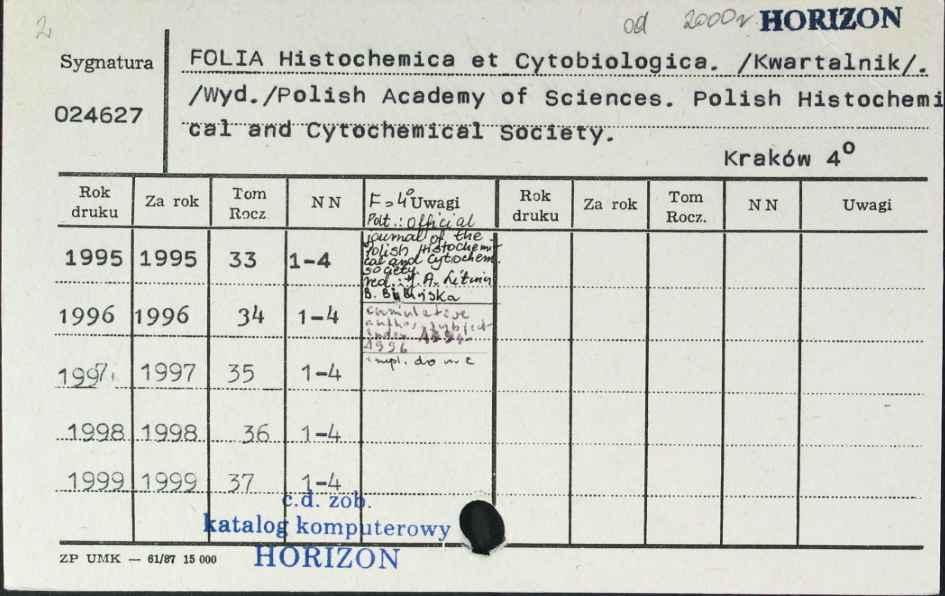 2
od 2000r. HORIZON
Sygnatura
024627
FOLIA Histochemica et Cytobiologica. /Kwartalnik/.
/Wyd./Polish Academy of Sciences. Polish Histochemi
cal and Cytochemical Society.
Kraków 4°
Rok druku Za rok Tom Rocz. NN F=4° Uwagi Rok druku Za rok Tom Rocz. NN Uwagi
Pat.: Official
journal of the
Polish Histochemi-
cal and Cytochem.
society.
red.: J. A. Litwin
B. Bilińska
1995 1995 33 1-4
cumulative
author, subject
index 1994-
1996
1996 1996 34 1-4
impl. do nr
1997. 1997 35 1-4
1998 1998 36 1-4
1999 1999 37 1-4
c.d. zob.
katalog komputerowy
HORIZON
ZP UMK — 61/87 15 000